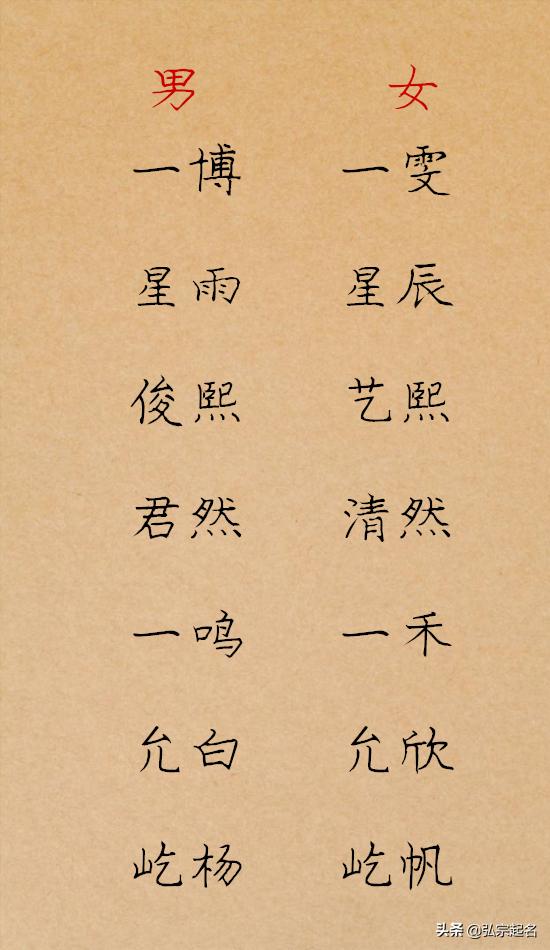 男 女
一博 一雯
星雨 星辰
俊熙 艺熙
君然 清然
一鸣 一禾
允白 允欣
屹杨 屹帆
头条 @弘宗起名